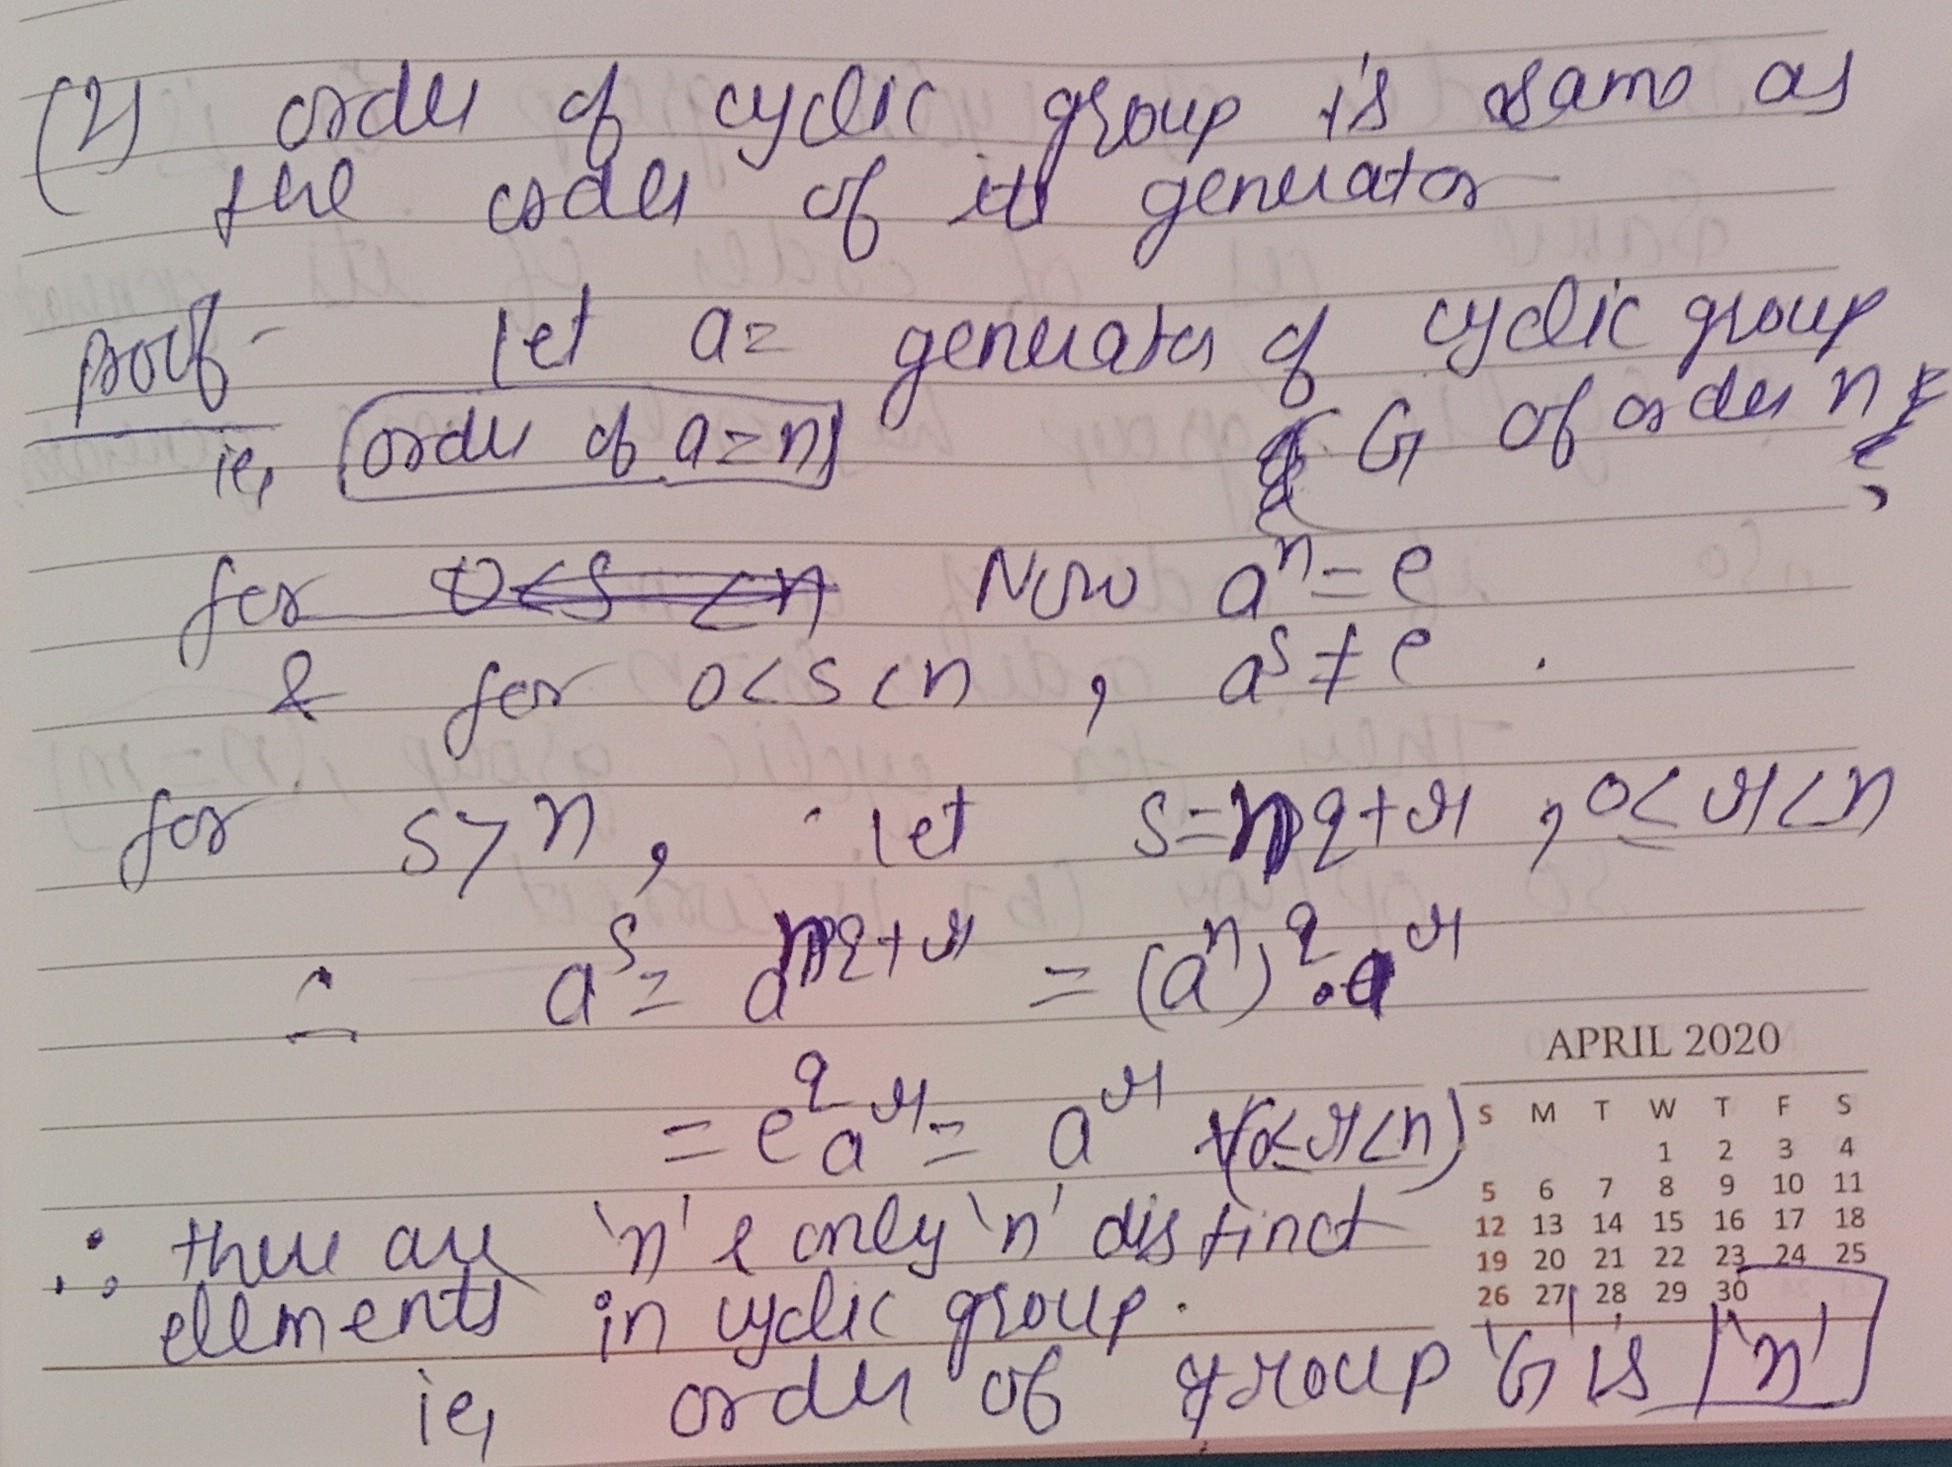 (2) order of cyclic group is same as
the order of its generator
proof - Let a = generator of cyclic group
ie, order of a = n G of order n
for 0<s<n Now aⁿ = e
& for 0<s<n , aˢ ≠ e .
for s>n, Let s = nq+r , 0≤r<n
∴ aˢ = a^nq+r = (aⁿ)^q . a^r
= e^q a^r = a^r ∀(0≤r<n)
∴ there are 'n' & only 'n' distinct
elements in cyclic group.
ie, order of group 'G' is 'n'
APRIL 2020
S M T W T F S
1 2 3 4
5 6 7 8 9 10 11
12 13 14 15 16 17 18
19 20 21 22 23 24 25
26 27 28 29 30